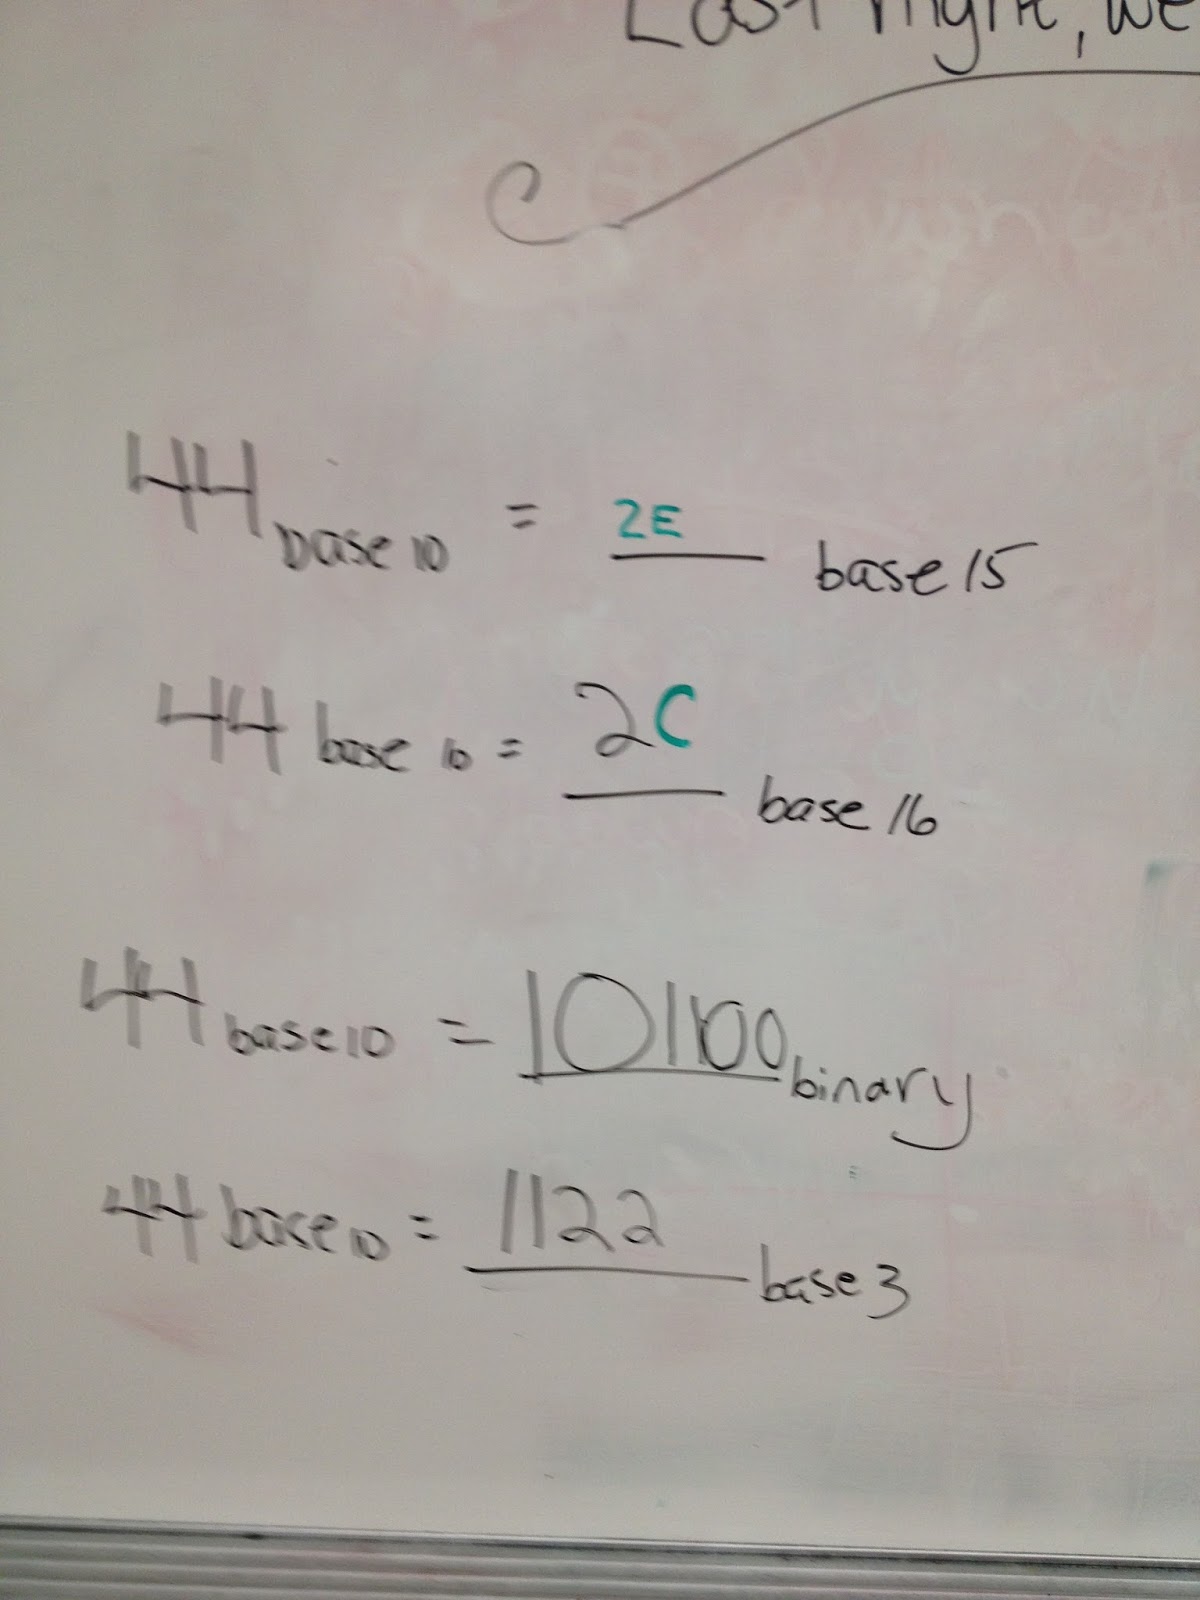 Last night, we
44 base 10 = 2E base 15
44 base 10 = 2C base 16
44 base 10 = 101100 binary
44 base 10 = 1122 base 3